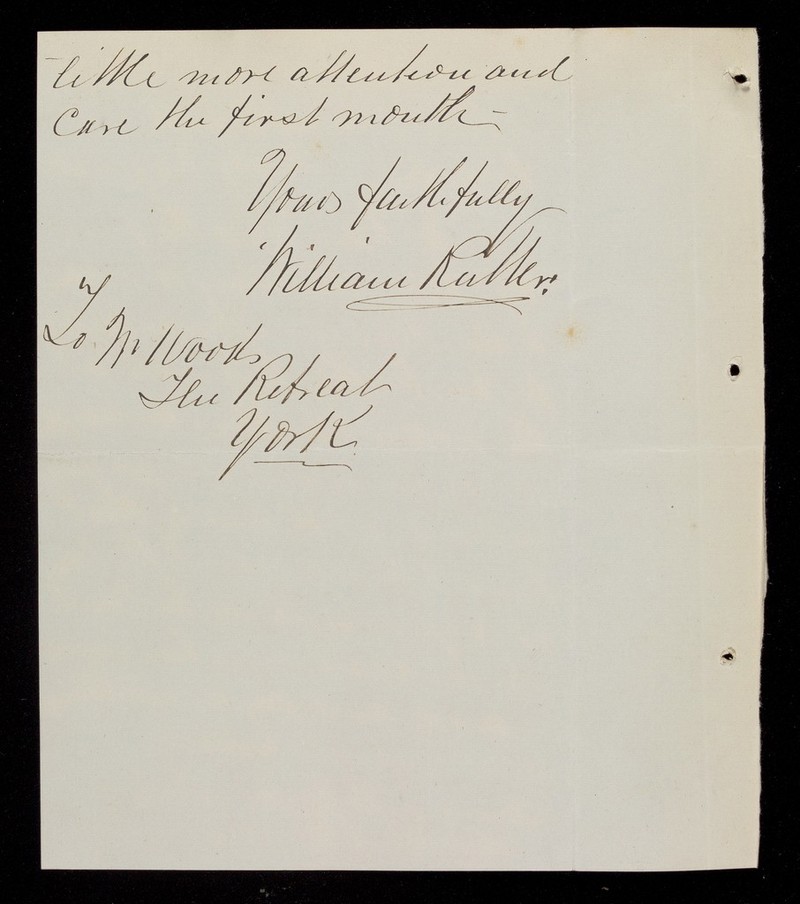 little more attention and
Care the first month –
Yours faithfully
William Rutter.
To Mr Woods
The Retreat
York